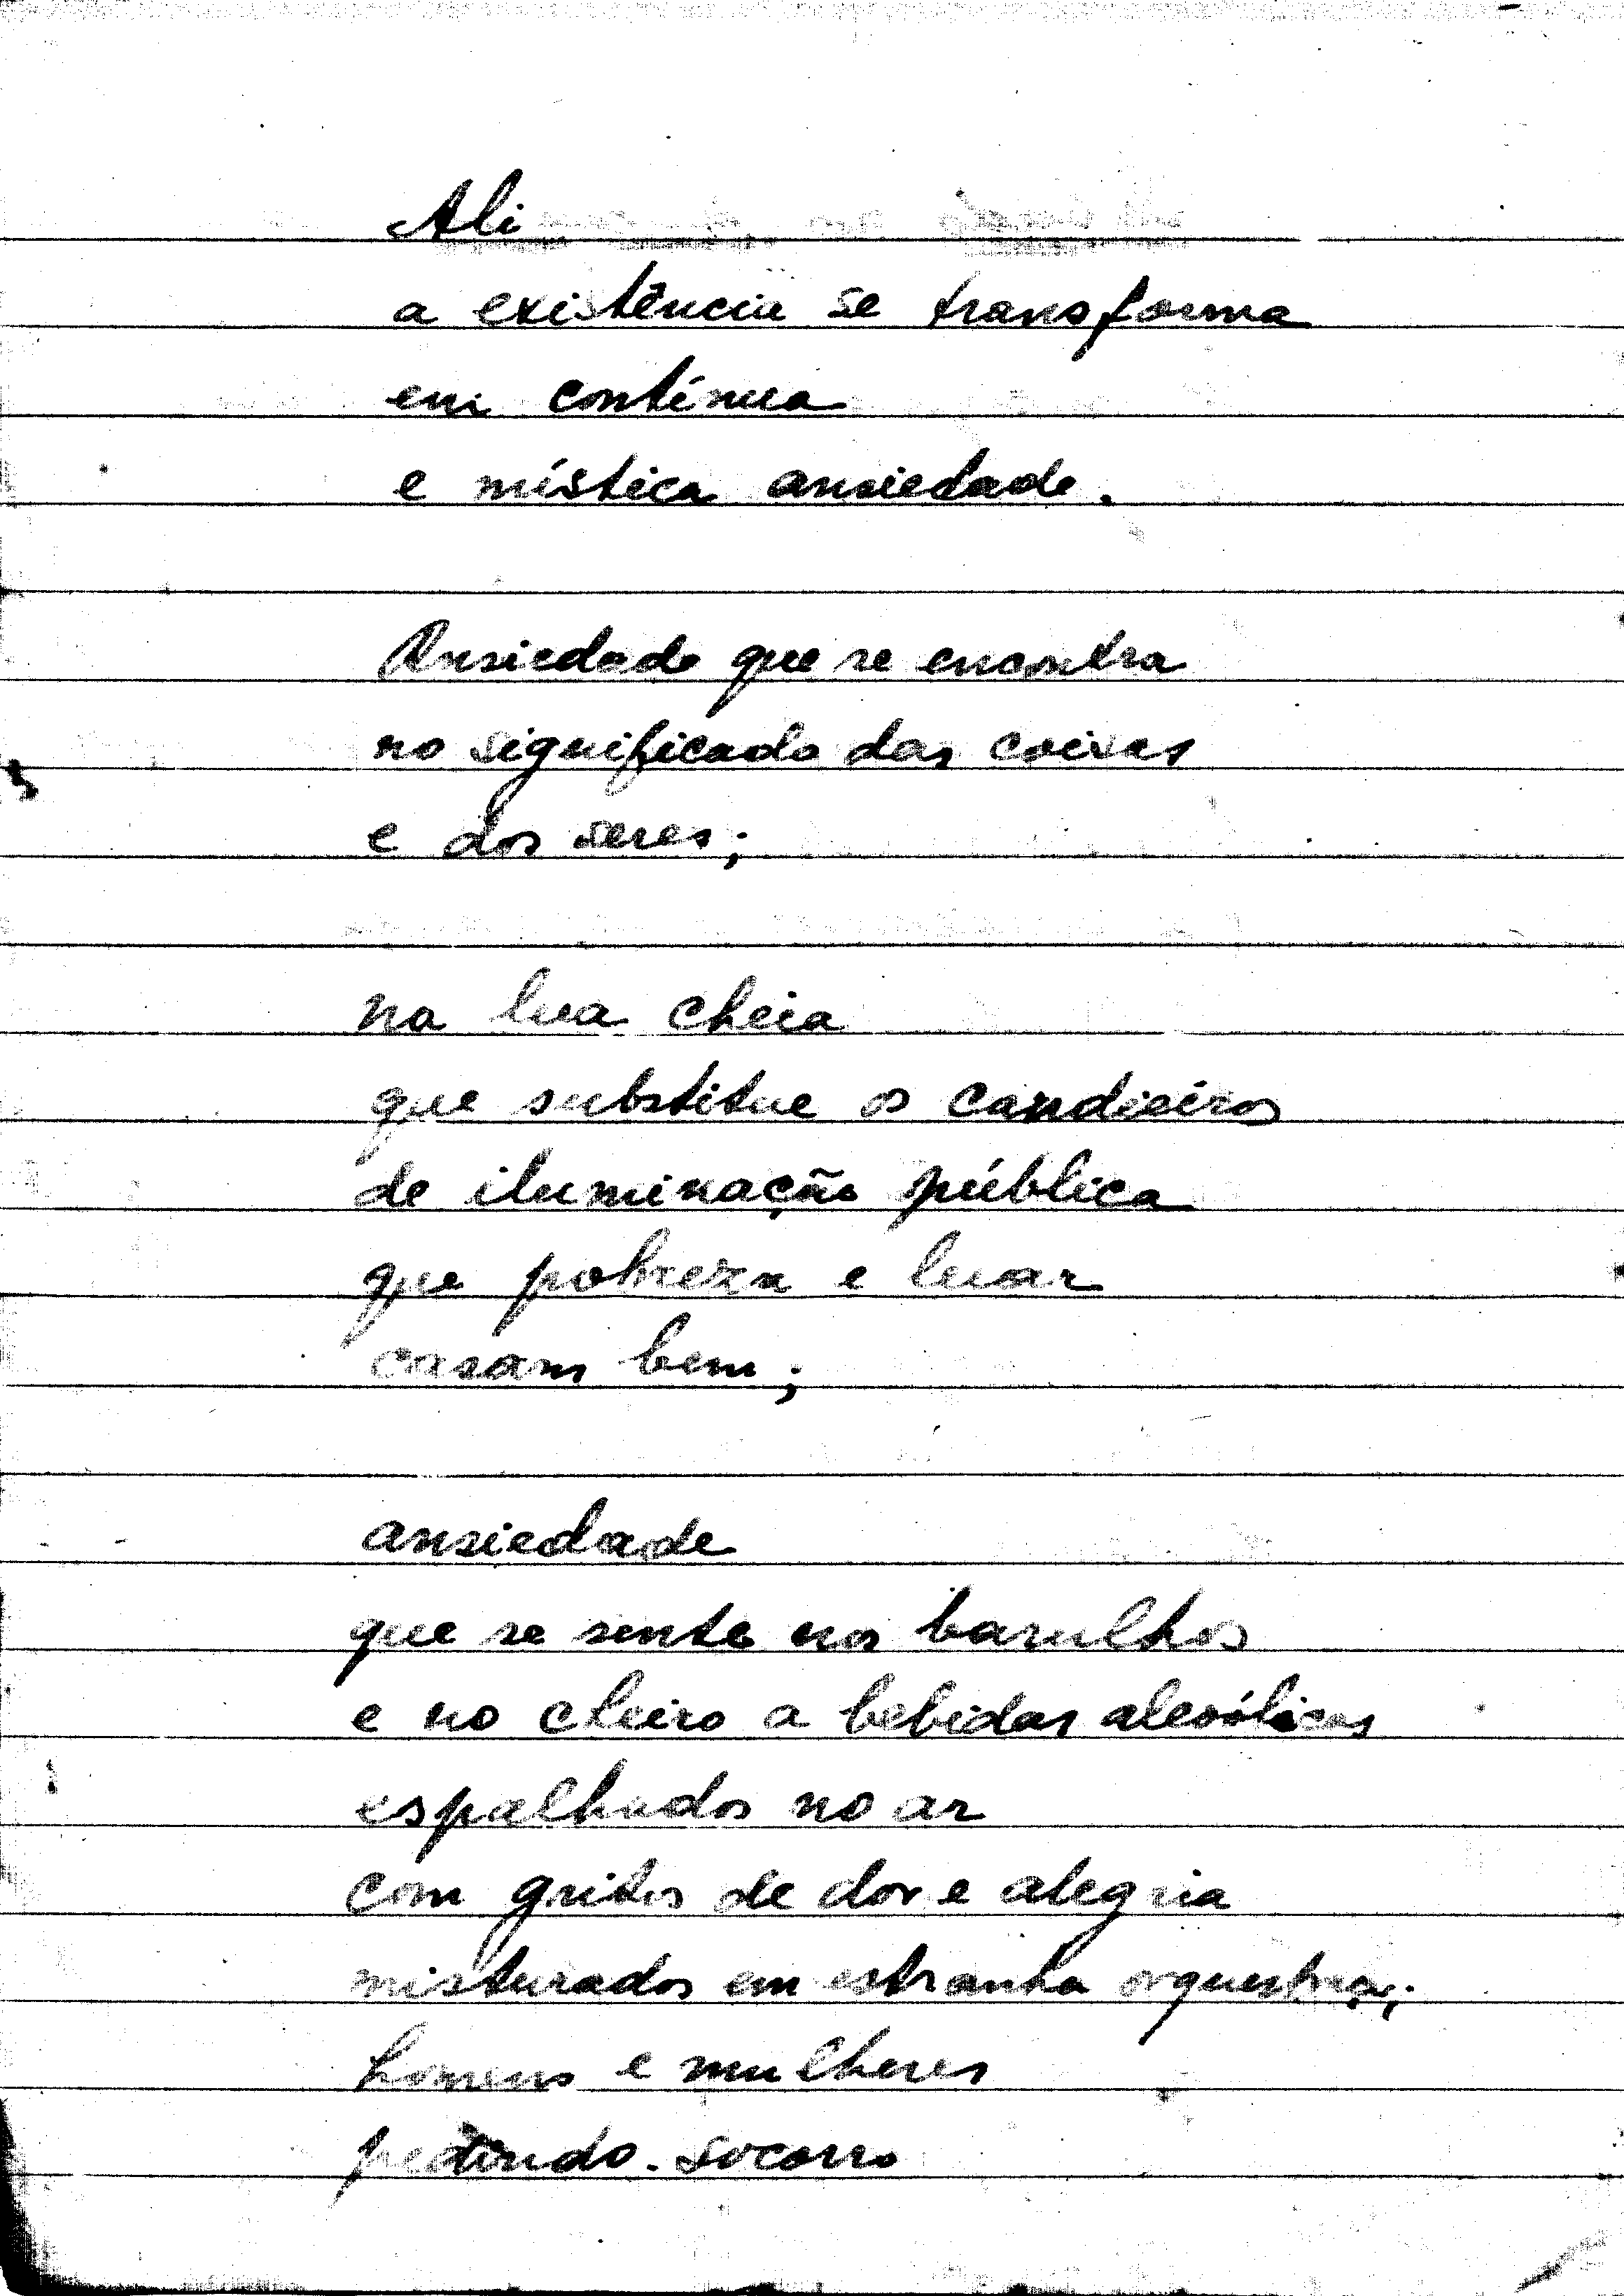 Ali
a existência se transforma
em contínua
e mística ansiedade.
Ansiedade que se encontra
no significado das coisas
e dos seres;
na lua cheia
que substitue os candieiros
de iluminação pública
que pobreza e luar
casam bem;
ansiedade
que se sente nos barulhos
e no cheiro a bebidas alcoólicas
espalhados no ar
com gritos de dor e alegria
misturados em estranha orquestra;
homens e mulheres
pedindo socorro